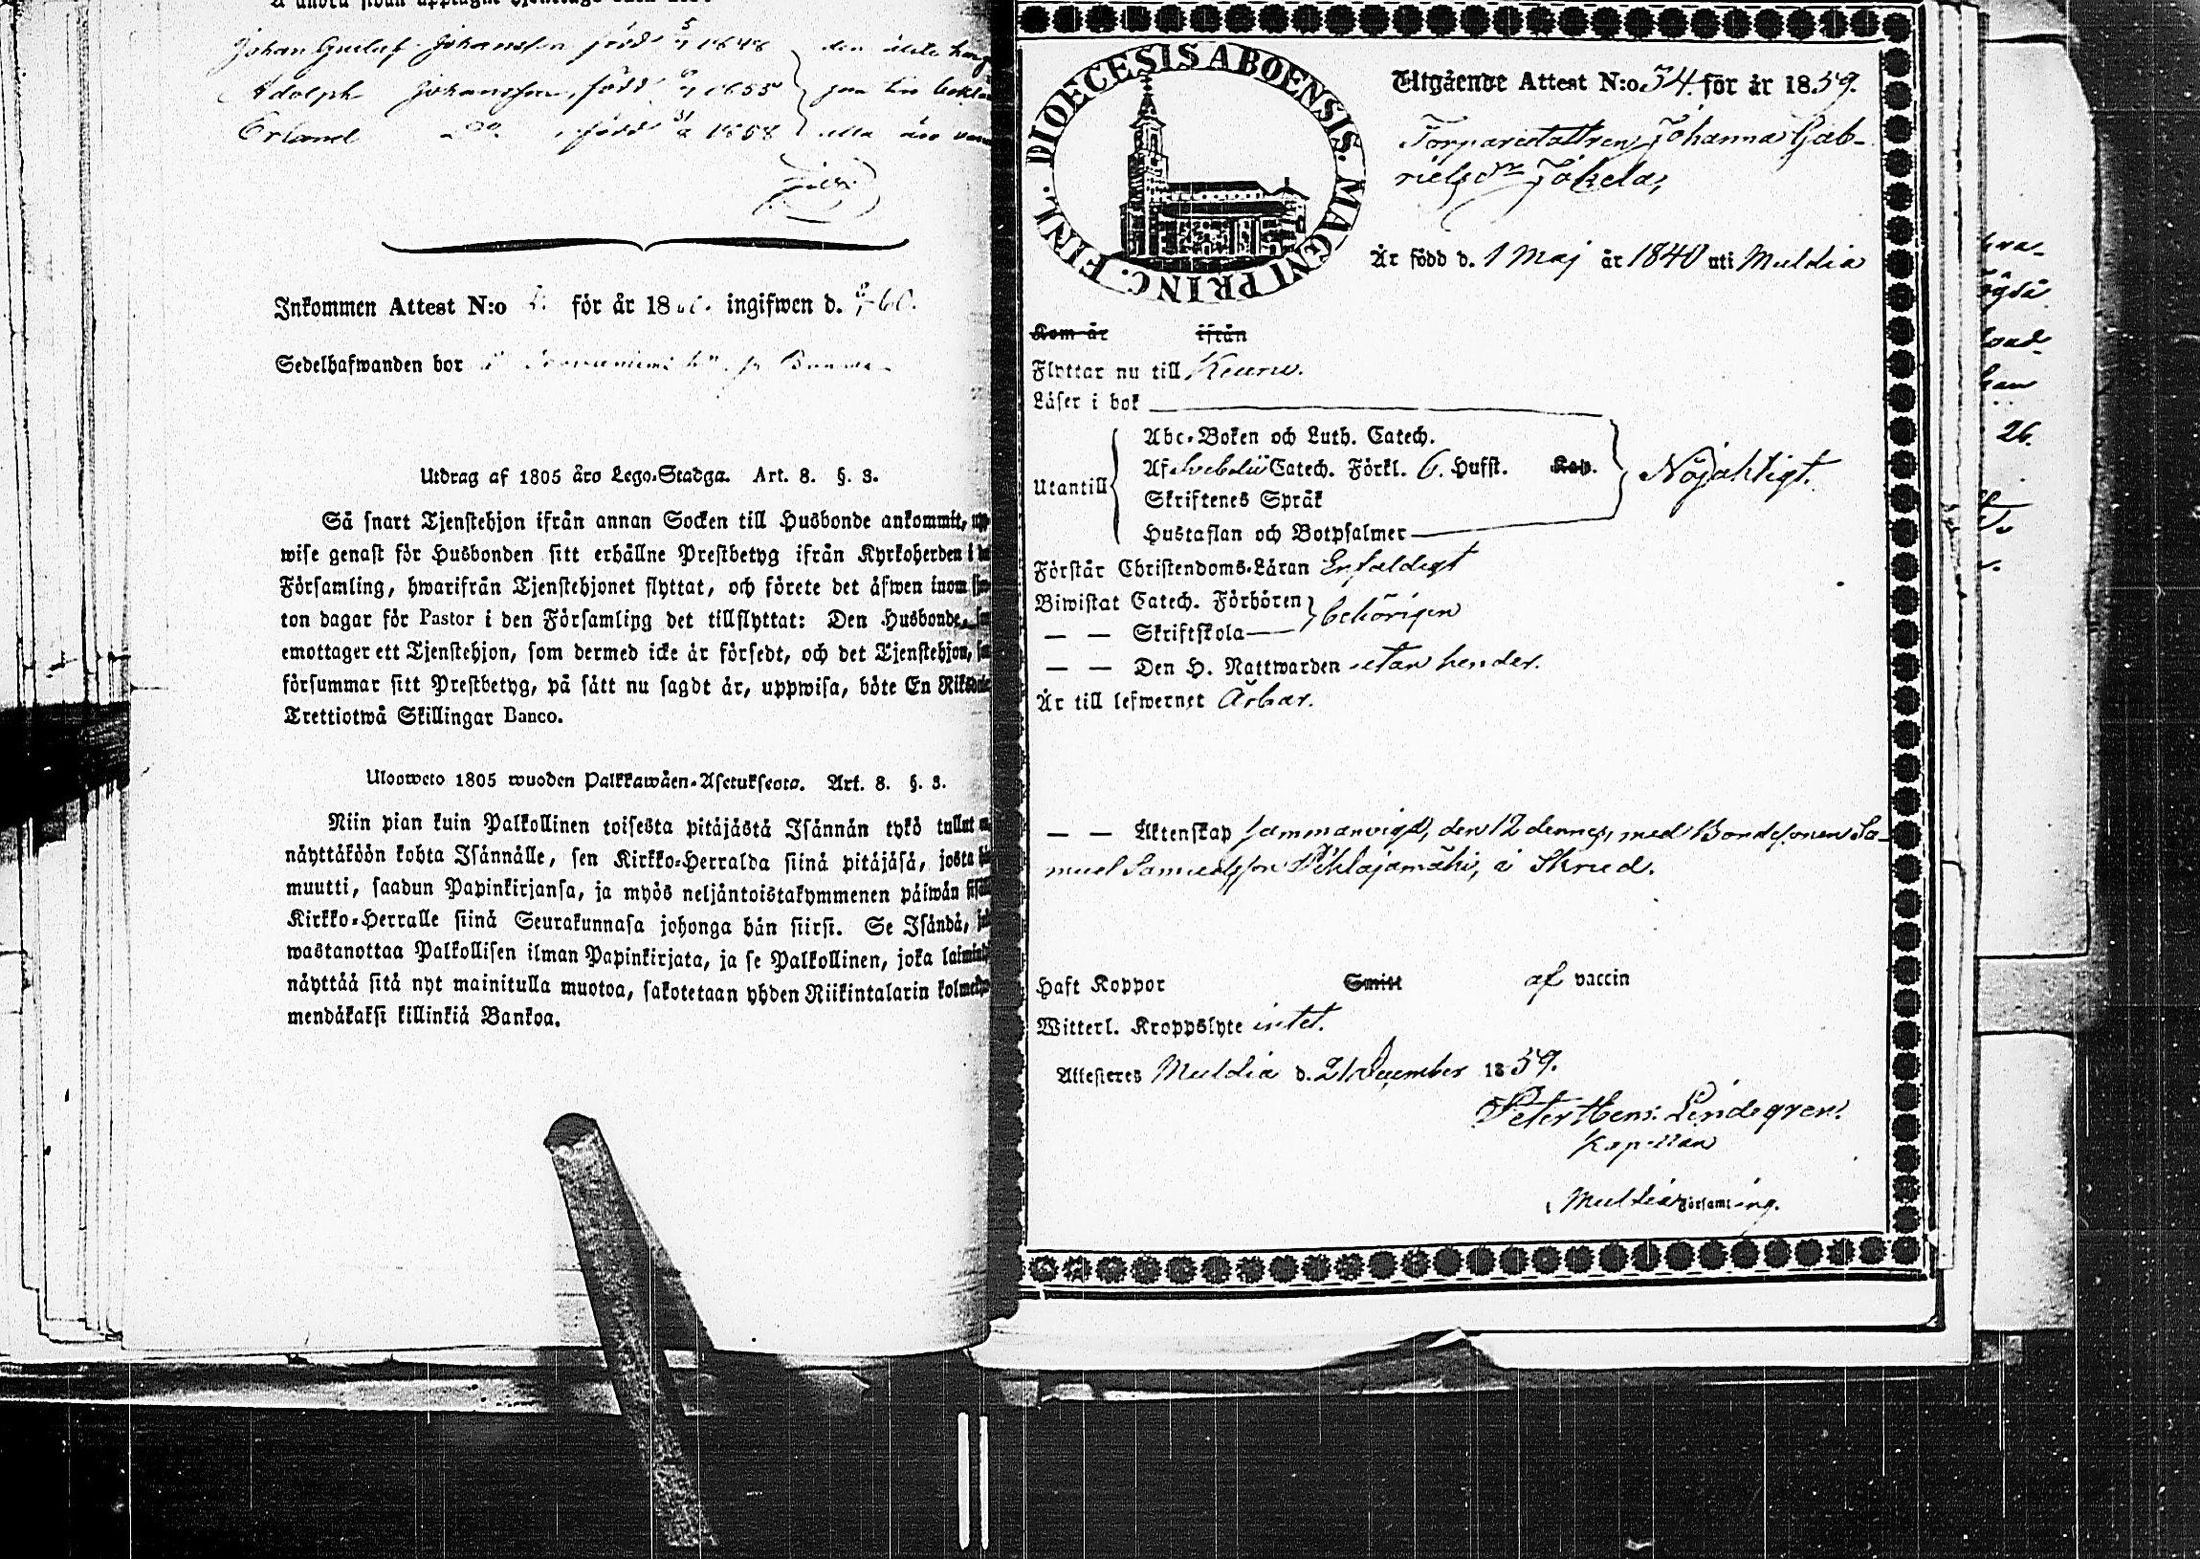 Johan Gustaf Johansson född 5/7 1848
Adolph Johansson, född 1855
Erland Do, född 31/ 1858
Inkommen Attest N:o för år 18 ingifwen d. 60.
Sedelhafwanden bor
Utdrag af 1805 års Lego-Stadga. Art. 8. §. 3.
Så snart Tjenstehjon ifrån annan Socken till Husbonde ankommit,
wise genast för Husbonden sitt erhållne Prestbetyg ifrån Kyrkoherden i
Församling, hwarifrån Tjenstehjonet flyttat, och förete det äfwen inom
ton dagar för Pastor i den Församling det tillflyttat: Den Husbonde,
emottager ett Tjenstehjon, som dermed icke är försedt, och det Tjenstehjon,
försummar sitt Prestbetyg, på sätt nu sagdt är, uppwisa, böte En
Trettiotwå Skillingar Banco.
Ulosweto 1805 wuoden Palkkawäen-Asetuksesta. Art. 8. §. 3.
Niin pian kuin Palkollinen toisesta pitäjästä Isännän tykö tullut
näyttäköön kohta Isännälle, sen Kirkko-Herralda siinä pitäjäsä, josta
muutti, saadun Papinkirjansa, ja myös neljäntoistakymmenen päiwän
Kirkko-Herralle siinä Seurakunnasa johonga hän siirsi. Se Isändä,
wastanottaa Palkollisen ilman Papinkirjata, ja se Palkollinen, joka
näyttää sitä nyt mainitulla muotoa, sakotetaan yhden Riikintalarin
mendäkaksi killinkiä Bankoa.
DIOECESIS ABOENSIS. MAGNI PRINC. FINL.
Utgående Attest N:o 34. för år 1859.
Torparedottren Johanna Gab-
rielsdr Jokela,
Är född d. 1 Maj år 1840 uti Muldia
Kom år ifrån
Flyttar nu till Keuru.
Läser i bok
Abc-Boken och Luth. Catech.
Af Svebelii Catech. Förkl. 6. Hufst. Kap.
Utantill
Nöjaktigt.
Skriftenes Språk
Hustaflan och Botpsalmer
Förstår Christendoms-Läran Enfaldigt
Biwistat Catech. Förhören
behörigen
— — Skriftskola
— — Den H. Nattwarden utan hinder.
Är till lefwernet Ärbar.
— — Äktenskap sammanvigd, den 12 dennes, med Bondesonen Sa-
muel Samuelsson Pihlajamäki, i Skrud.
Haft Koppor Smitt af vaccin
Witterl. Kroppslyte intet.
Attesteres Muldia d. 21 December 1859.
Peter Lindegren.
Kapellan
i Muldia Församling.
26.